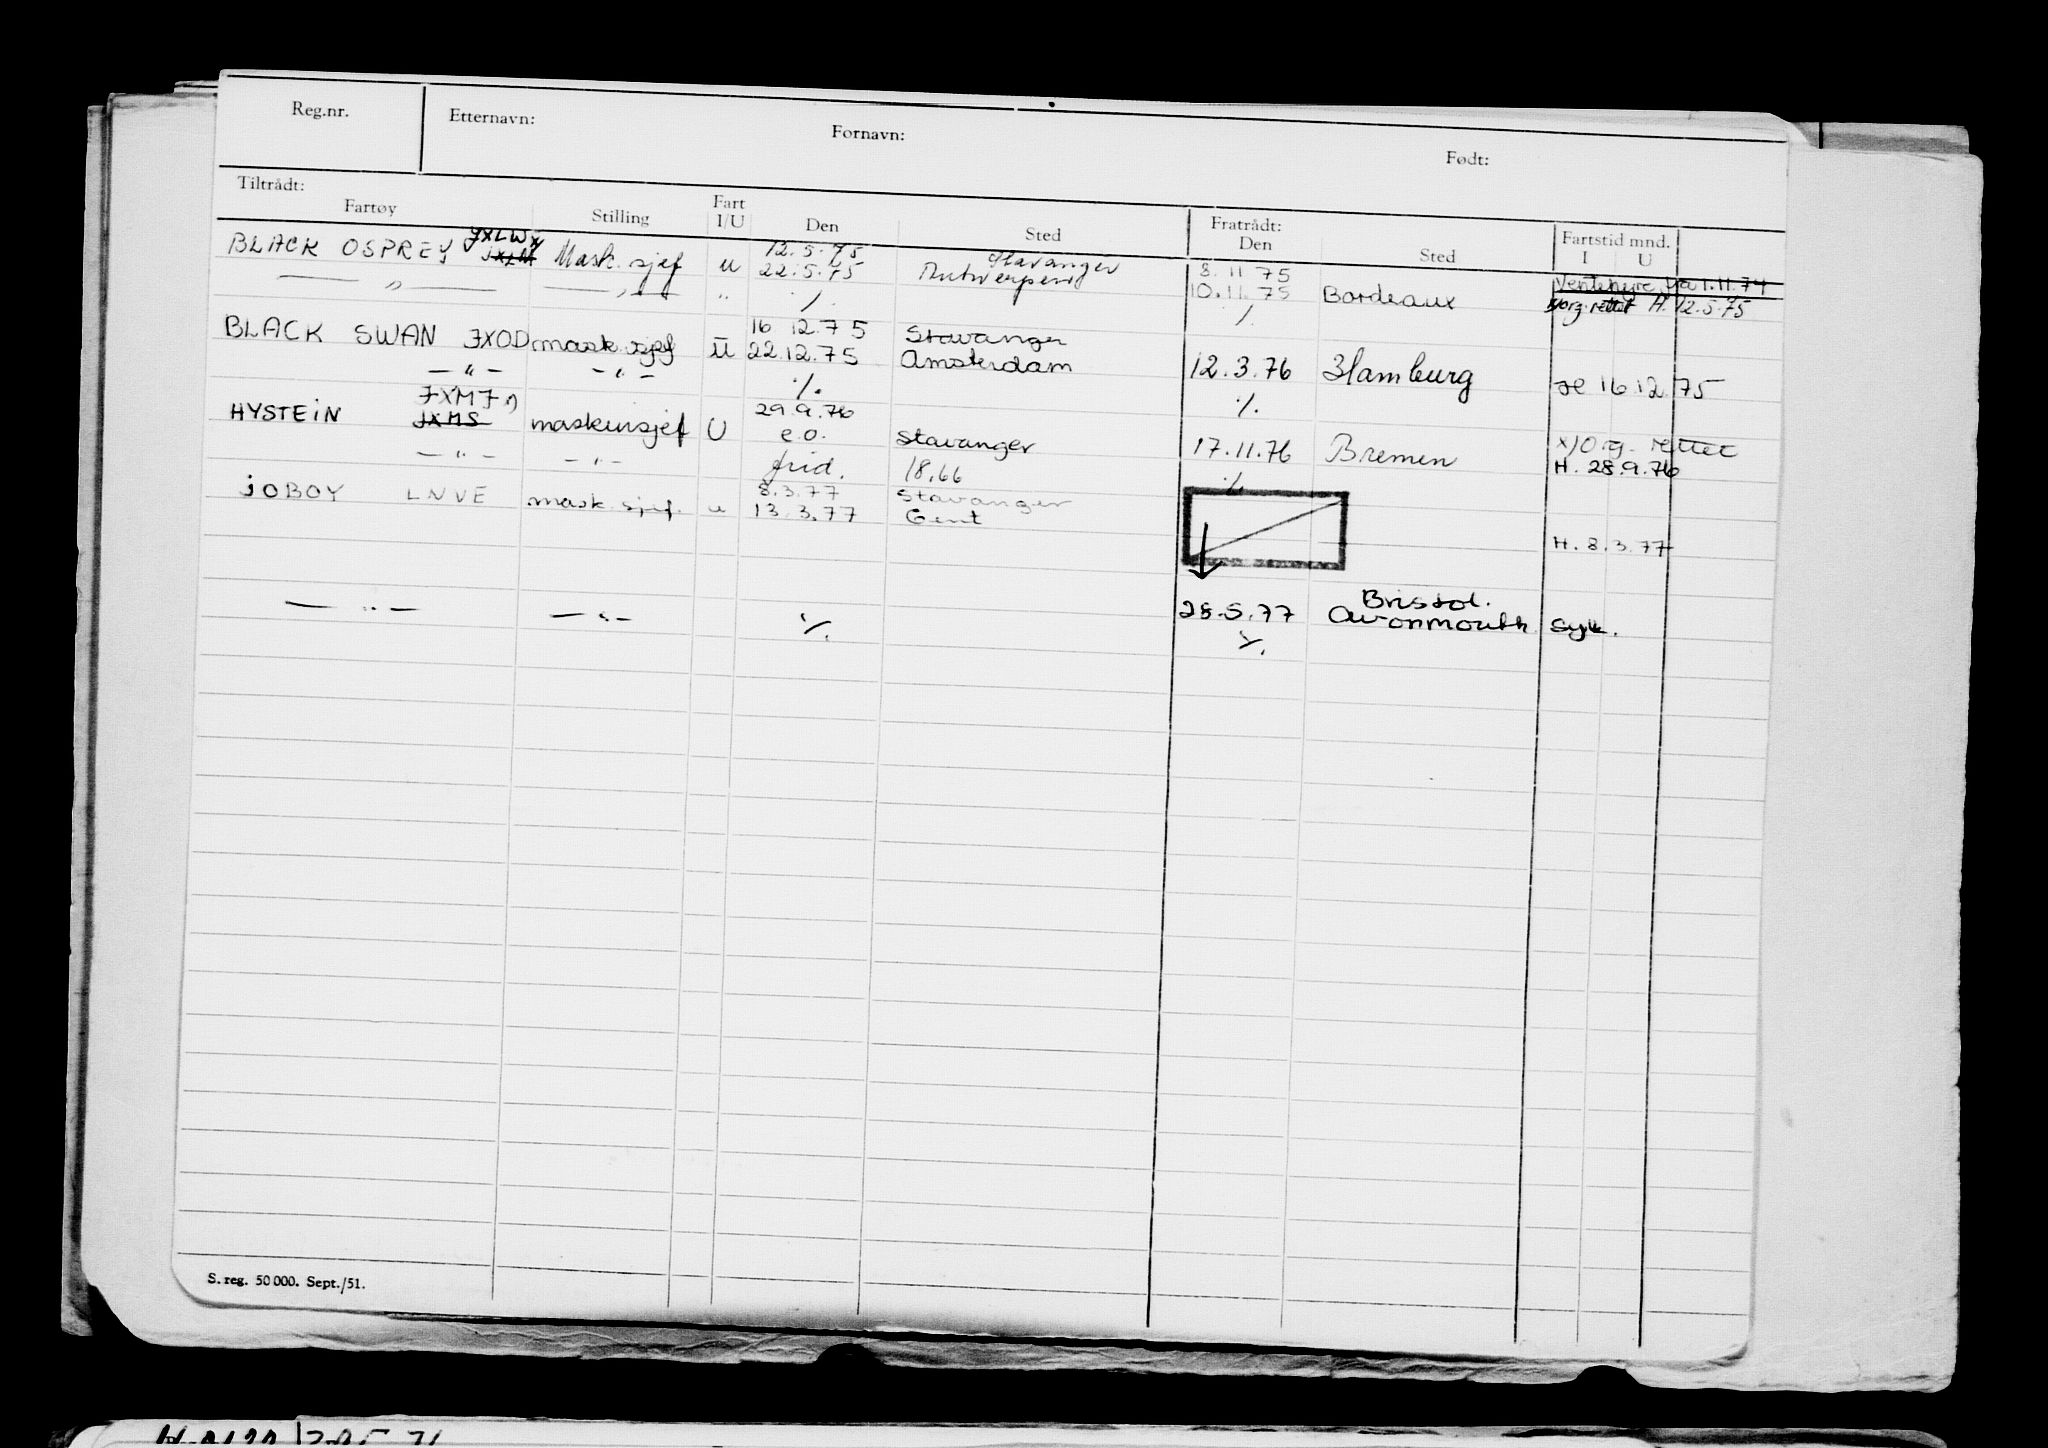 Reg.nr. Etternavn: Fornavn: Født:
Tiltrådt: Fratrådt: Fartstid mnd.
Fartøy Stilling Fart I/U Den Sted Den Sted I U
JXLW x) 12.5.75 Stavanger 8.11 75
BLACK OSPREY Mask. sjef u 22.5.75 Antwerpen 10.11.75 Bordeaux Ventehyre fra 1.11.74
— " — — " — " ·/. ·/. x) org. rettet H. 12.5.75
16 12.75 Stavanger
BLACK SWAN JXOD mask. sjef U 22.12.75 Amsterdam 12.3.76 Hamburg H 16.12.75
— " — — " — ·/. ·/.
JXMF x) 29.9.76
HYSTEIN JXMS maskinsjef U e.o. Stavanger 17.11.76 Bremen x) Org. rettet
H. 28.9.76
— " — — " — frid. 18,66 ·/.
8.3.77 Stavanger
JOBOY LNVE mask. sjef. u 13.3.77 Gent
H. 8.3.77
Bristol.
— " — — " — ·/. 28.5.77 Avonmouth syk.
·/.
S. reg. 50 000. Sept./51.